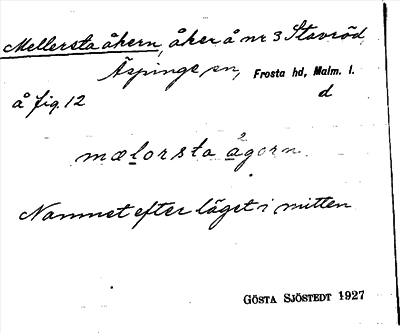 Mellersta åkern, åker å nr 3 Stavröd,
Äspinge sn, Frosta hd, Malm. l.
å fig. 12 d
mælorsta ågorn.
Namnet efter läget i mitten
GÖSTA SJÖSTEDT 1927